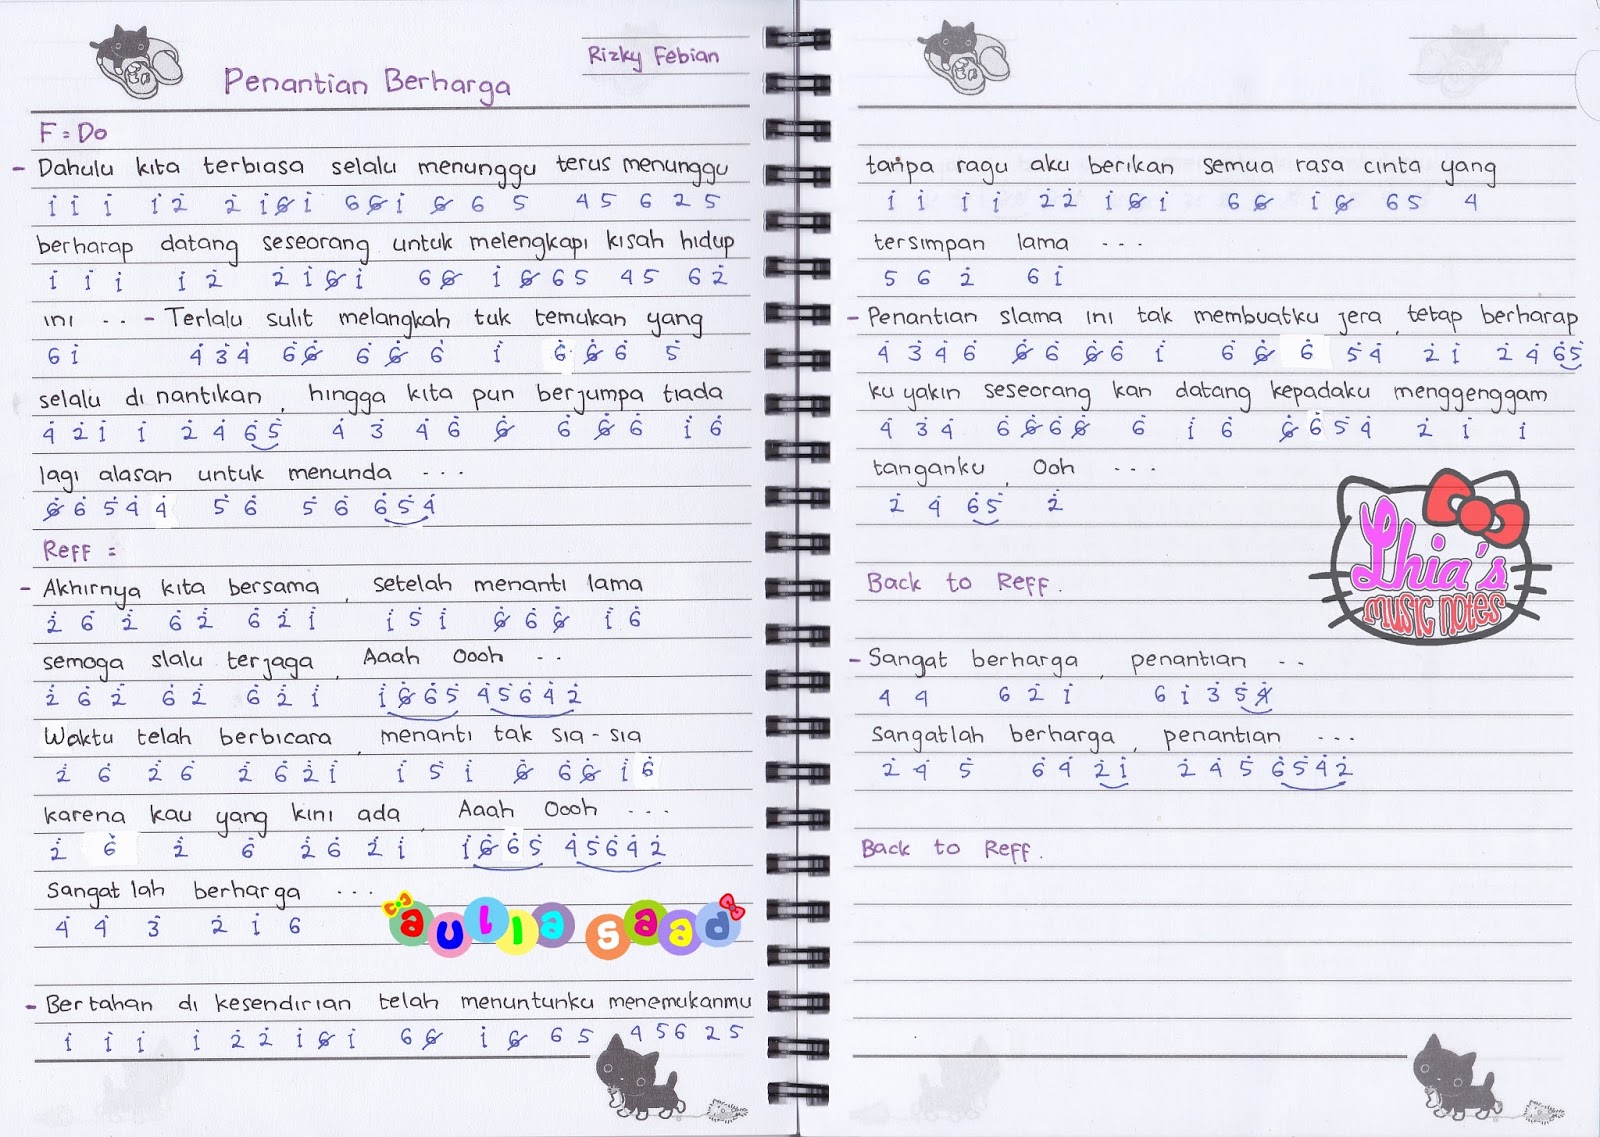 Rizky Febian
Penantian Berharga
F = Do
- Dahulu kita terbiasa selalu menunggu terus menunggu
1 1 1 1 2 2 1 6 1 6 6 1 6 6 5 4 5 6 2 5
berharap datang seseorang untuk melengkapi kisah hidup
1 1 1 1 2 2 1 6 1 6 6 1 6 6 5 4 5 6 2
ini .. - Terlalu sulit melangkah tuk temukan yang
6 1 4 3 4 6 6 6 6 6 1 6 6 6 5
selalu di nantikan, hingga kita pun berjumpa tiada
4 2 1 1 2 4 6 5 4 3 4 6 6 6 6 6 1 6
lagi alasan untuk menunda ...
6 6 5 4 4 5 6 5 6 6 5 4
Reff =
- Akhirnya kita bersama, setelah menanti lama
2 6 2 6 2 6 2 1 1 5 1 6 6 6 1 6
semoga slalu terjaga, Aaah Oooh ..
2 6 2 6 2 6 2 1 1 6 6 5 4 5 6 4 2
Waktu telah berbicara, menanti tak sia-sia
2 6 2 6 2 6 2 1 1 5 1 6 6 6 1 6
karena kau yang kini ada, Aaah Oooh ...
2 6 2 6 2 6 2 1 1 6 6 5 4 5 6 4 2
Sangat lah berharga ...
4 4 3 2 1 6
aulia saad
- Bertahan di kesendirian telah menuntunku menemukanmu
1 1 1 1 2 2 1 6 1 6 6 1 6 6 5 4 5 6 2 5
tanpa ragu aku berikan semua rasa cinta yang
1 1 1 1 2 2 1 6 1 6 6 1 6 6 5 4
tersimpan lama ...
5 6 2 6 1
- Penantian slama ini tak membuatku jera, tetap berharap
4 3 4 6 6 6 6 6 1 6 6 6 5 4 2 1 2 4 6 5
ku yakin seseorang kan datang kepadaku menggenggam
4 3 4 6 6 6 6 6 1 6 6 6 5 4 2 1 1
tanganku, Ooh ...
2 4 6 5 2
Lhia's
music notes
Back to Reff.
- Sangat berharga, penantian ..
4 4 6 2 1 6 1 3 5 4
Sangatlah berharga, penantian ...
2 4 5 6 4 2 1 2 4 5 6 5 4 2
Back to Reff.